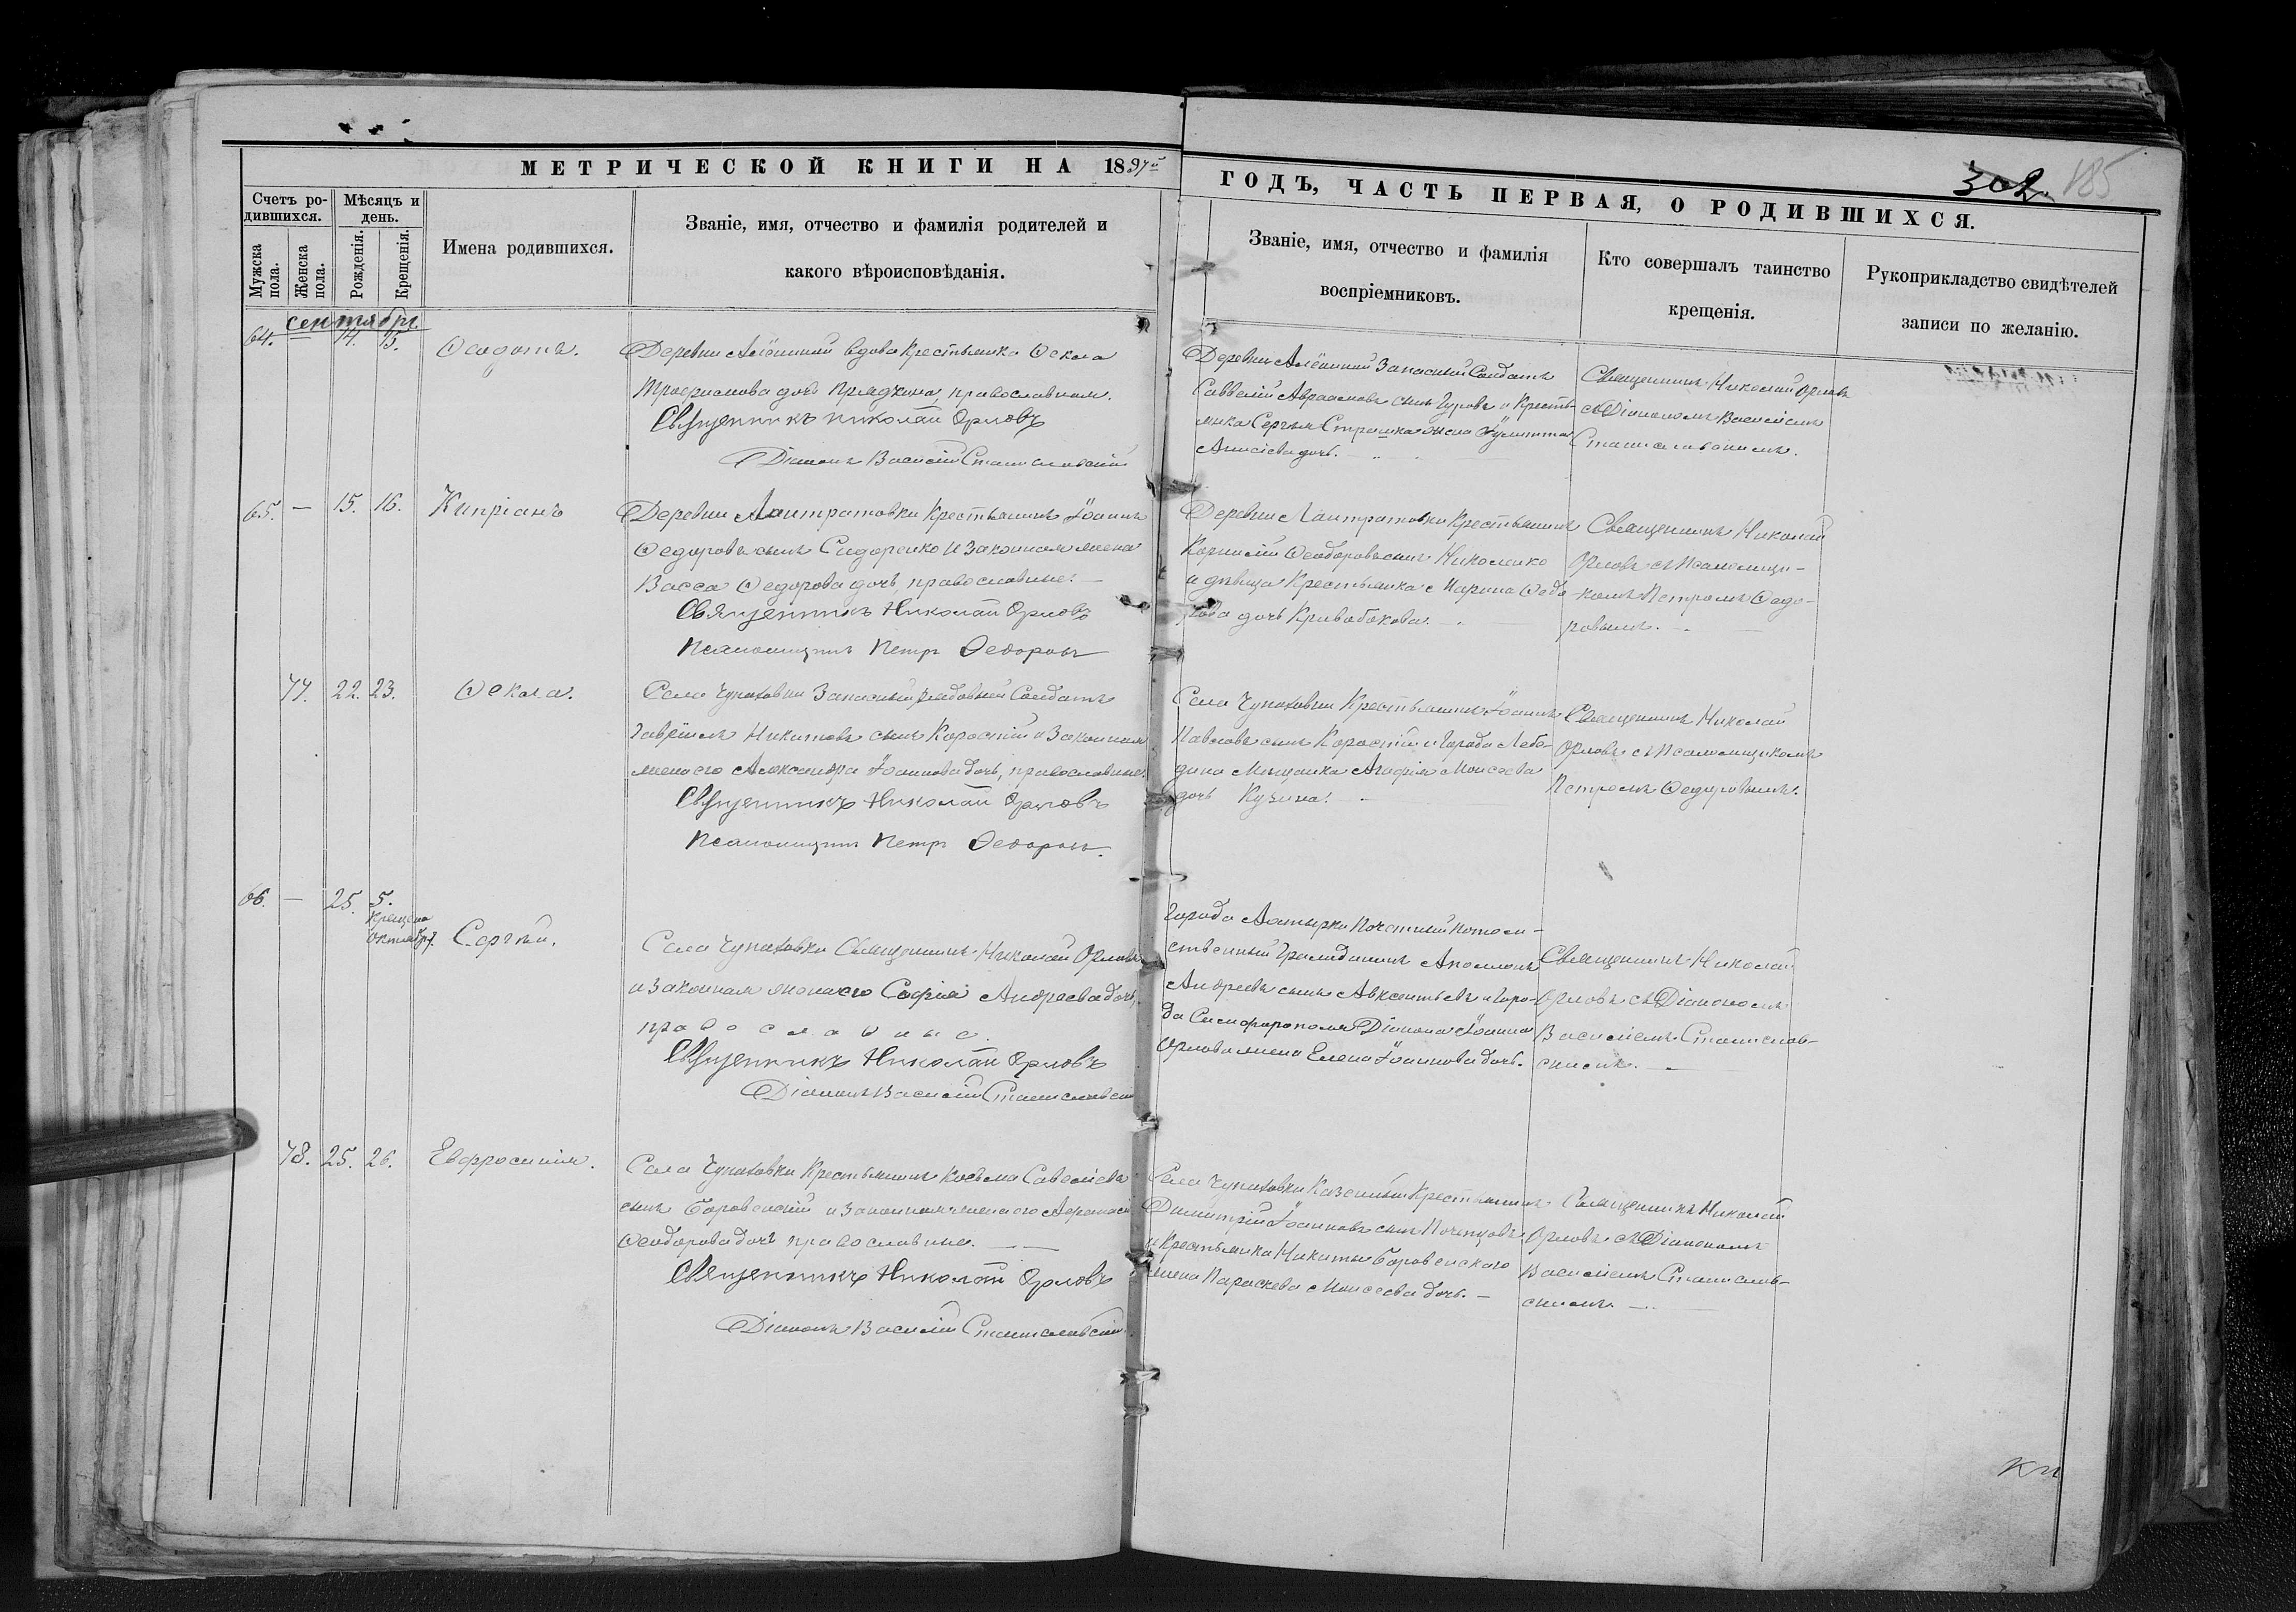 МЕТРИЧЕСКОЙ КНИГИ НА 1897й
ГОДЪ, ЧАСТЬ ПЕРВАЯ, О РОДИВШИХСЯ.
302. 185
Счетъ ро-
дившихся.
Мужска
пола.
Женска
пола.
Мѣсяцъ и
день.
Рожденія.
Крещенія.
Имена родившихся.
Званіе, имя, отчество и фамилія родителей и
какого вѣроисповѣданія.
Званіе, имя, отчество и фамилія
воспріемниковъ.
Кто совершалъ таинство
крещенія.
Рукоприкладство свидѣтелей
записи по желанію.
сентябрь
64. — 14. 15.
Ѳеодотъ.
Деревни Алёшиной вдова Крестьянка Ѳекла
дочь православная.
Священникъ Николай Орловъ
Діаконъ Василій Станиславскій
Деревни Алёшиной Запасный Солдатъ
Савватій Авраамовъ сынъ Гуровъ и Кресть-
янка Сергія Страшка жена Іулитта
дочь.
Священникъ Николай Орловъ
съ Діакономъ Василіемъ
Станиславскимъ.
65. — 15. 16.
Кипріанъ
Деревни Лантратовки Крестьянинъ Іоаннъ
Ѳедоровъ сынъ Сидоренко и Законная жена
Васса Ѳедорова дочь, православные. —
Священникъ Николай Орловъ
Псаломщикъ Петръ Ѳедоровъ
Деревни Лантратовки Крестьянинъ
Корнилій Ѳеодоровъ сынъ Николенко
и дѣвица Крестьянка Марина Ѳедо-
рова дочь Кривобокова. —
Священникъ Николай
Орловъ съ Псаломщи-
комъ Петромъ Ѳедо-
ровымъ. —
77. 22. 23.
Ѳекла.
Села Чупаховки Запасный рядовый Солдатъ
Гавріилъ Никитовъ сынъ Коростій и Законная
жена его Александра Іоаннова дочь, православные.
Священникъ Николай Орловъ
Псаломщикъ Петръ Ѳедоровъ.
Села Чупаховки Крестьянинъ Іоаннъ
Павловъ сынъ Коростій и Города Лебе-
дина Мѣщанка Агафія Моисеева
дочь Кузина. —
Священникъ Николай
Орловъ съ Псаломщикомъ
Петромъ Ѳедоровымъ.
66. — 25. 5.
Крещенъ
Октября.
Сергѣй.
Села Чупаховки Священникъ Николай Орловъ
и Законная жена его Софія Андреева дочь,
православные.
Священникъ Николай Орловъ
Діаконъ Василій Станиславскій
Города Ахтырки Почетный Потом-
ственный Гражданинъ Аполлонъ
Андреевъ сынъ Авксентьевъ и Горо-
да Симферополя Діакона Іоанна
Орлова жена Елена Іоаннова дочь.
Священникъ Николай
Орловъ съ Діакономъ
Василіемъ Станислав-
скимъ. —
78. 25. 26.
Евфросинія.
Села Чупаховки Крестьянинъ Косьма Савеліевъ
сынъ Боровенскій и Законная жена его
Ѳеодорова дочь православные. —
Священникъ Николай Орловъ
Діаконъ Василій Станиславскій.
Села Чупаховки Казенный Крестьянинъ
Димитрій Іоанновъ сынъ
и Крестьянина Никиты Боровенского
жена Параскева Моисеева дочь. —
Священникъ Николай
Орловъ съ Діакономъ
Василіемъ Станислав-
скимъ. —